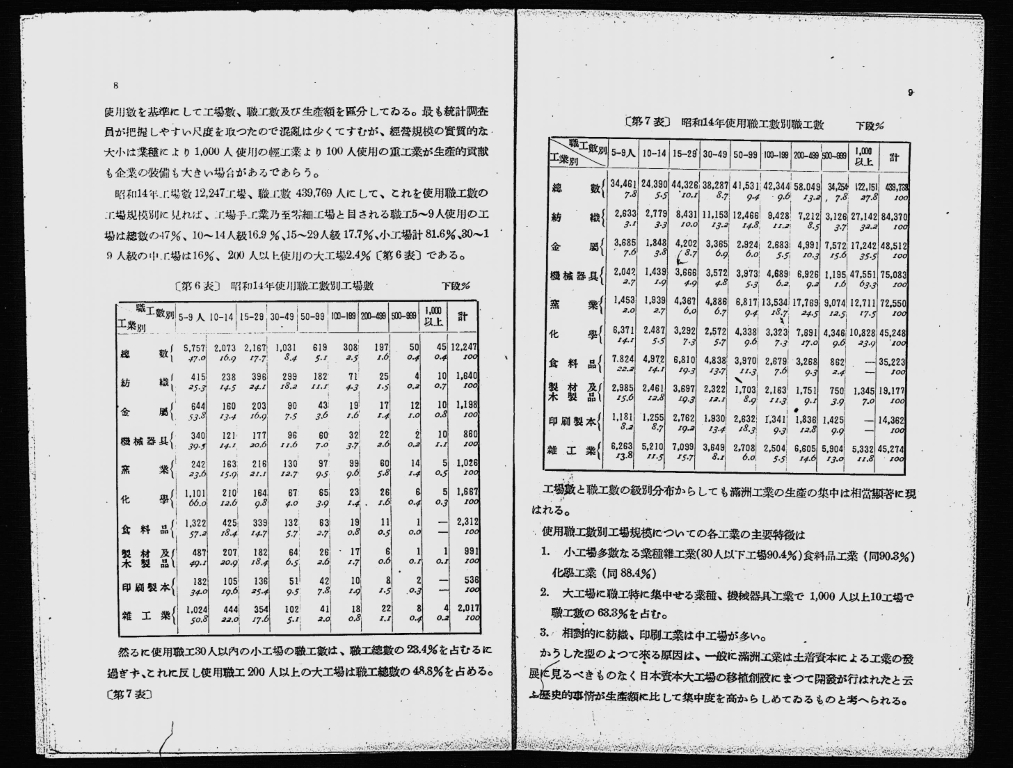 8
使用數を基準にして工場數、職工數及び生產額を區分してゐる。最も統計調査
員が把握しやすい尺度を取つたので混亂は少くてすむが、經營規模の實質的な
大小は業種により 1,000 人使用の輕工業より 100 人使用の重工業が生產的貢獻
も企業の裝備も大きい場合があるであらう。
昭和14年工場數 12,247工場、職工數 439,769 人にして、これを使用職工數の
工場規模別に見れば、工場手工業乃至零細工場と目される職工5～9人使用の工
場は總數の47％、10～14人級16.9 ％、15～29人級 17.7％、小工場計 81.6％、30～1
9 人級の中工場は16％、 200 人以上使用の大工場2.4％〔第6表〕である。
〔第6表〕 昭和14年使用職工數別工場數 下段％
職工數別 工業別 5-9人 10-14 15-29 30-49 50-99 100-199 200-499 500-999 1,000以上 計
總數 5,757 2,073 2,167 1,031 619 308 197 50 45 12,247
47.0 16.9 17.7 8.4 5.1 2.5 1.6 0.4 0.4 100
紡織 415 238 396 299 182 71 25 4 10 1,640
25.3 14.5 24.1 18.2 11.1 4.3 1.5 0.2 0.7 100
金屬 644 160 203 90 43 19 17 12 10 1,198
53.8 13.4 16.9 7.5 3.6 1.6 1.4 1.0 0.8 100
機械器具 340 121 177 96 60 32 22 2 10 860
39.5 14.1 20.6 11.6 7.0 3.7 2.6 0.2 1.1 100
窯業 242 163 216 130 97 99 60 14 5 1,026
23.6 15.9 21.1 12.7 9.5 9.6 5.8 1.4 0.5 100
化學 1,101 210 164 67 65 23 26 6 5 1,667
66.0 12.6 9.8 4.0 3.9 1.4 1.6 0.4 0.3 100
食料品 1,322 425 339 132 63 19 11 1 — 2,312
57.2 18.4 14.7 5.7 2.7 0.8 0.5 0.0 — 100
製材及木製品 487 207 182 64 26 17 6 1 1 991
49.1 20.9 18.4 6.5 2.6 1.7 0.6 0.1 0.1 100
印刷製本 182 105 136 51 42 10 8 2 — 536
34.0 19.6 25.4 9.5 7.8 1.9 1.5 0.3 — 100
雜工業 1,024 444 354 102 41 18 22 8 4 2,017
50.8 22.0 17.6 5.1 2.0 0.8 1.1 0.4 0.2 100
然るに使用職工30人以內の小工場の職工數は、職工總數の 23.4％を占むるに
過ぎず、これに反し使用職工 200 人以上の大工場は職工總數の 48.8％を占める。
〔第7表〕
9
〔第7表〕 昭和14年使用職工數別職工數 下段％
職工數別 工業別 5-9人 10-14 15-29 30-49 50-99 100-199 200-499 500-999 1,000以上 計
總數 34,461 24,390 44,326 38,287 41,531 42,344 58,049 34,254 122,151 439,738
7.8 5.5 10.1 8.7 9.4 9.6 13.2 7.8 27.8 100
紡織 2,633 2,779 8,431 11,153 12,466 9,428 7,212 3,126 27,142 84,370
3.1 3.3 10.0 13.2 14.8 11.2 8.5 3.7 32.2 100
金屬 3,685 1,848 4,202 3,365 2,924 2,683 4,991 7,572 17,242 48,512
7.6 3.8 8.7 6.9 6.0 5.5 10.3 15.6 35.5 100
機械器具 2,042 1,439 3,666 3,572 3,973 4,689 6,926 1,195 47,551 75,083
2.7 1.9 4.9 4.8 5.3 6.2 9.2 1.6 63.3 100
窯業 1,453 1,939 4,367 4,886 6,817 13,534 17,769 9,074 12,711 72,550
2.0 2.7 6.0 6.7 9.4 18.7 24.5 12.5 17.5 100
化學 6,371 2,487 3,292 2,572 4,338 3,323 7,691 4,346 10,828 45,248
14.1 5.5 7.3 5.7 9.6 7.3 17.0 9.6 23.9 100
食料品 7,824 4,972 6,810 4,838 3,970 2,679 3,268 862 — 35,223
22.2 14.1 19.3 13.7 11.3 7.6 9.3 2.4 — 100
製材及木製品 2,985 2,461 3,697 2,322 1,703 2,163 1,751 750 1,345 19,177
15.6 12.8 19.3 12.1 8.9 11.3 9.1 3.9 7.0 100
印刷製本 1,181 1,255 2,762 1,930 2,632 1,341 1,836 1,425 — 14,362
8.2 8.7 19.2 13.4 18.3 9.3 12.8 9.9 — 100
雜工業 6,263 5,210 7,099 3,649 2,708 2,504 6,605 5,904 5,332 45,274
13.8 11.5 15.7 8.1 6.0 5.5 14.6 13.0 11.8 100
工場數と職工數の級別分布からしても滿洲工業の生產の集中は相當顯著に現
はれる。
使用職工數別工場規模についての各工業の主要特徵は
1. 小工場多數なる業種雜工業(30人以下工場90.4％)食料品工業 (同90.3％)
化學工業 (同 88.4％)
2. 大工場に職工特に集中せる業種、機械器具工業で 1,000 人以上10工場で
職工數の 63.3％を占む。
3. 相對的に紡織、印刷工業は中工場が多い。
かうした型のよつて來る原因は、一般に滿洲工業は土着資本による工業の發
展に見るべきものなく日本資本大工場の移植創設にまつて開發が行はれたと云
ふ歷史的事情が生產額に比して集中度を高からしめてゐるものと考へられる。